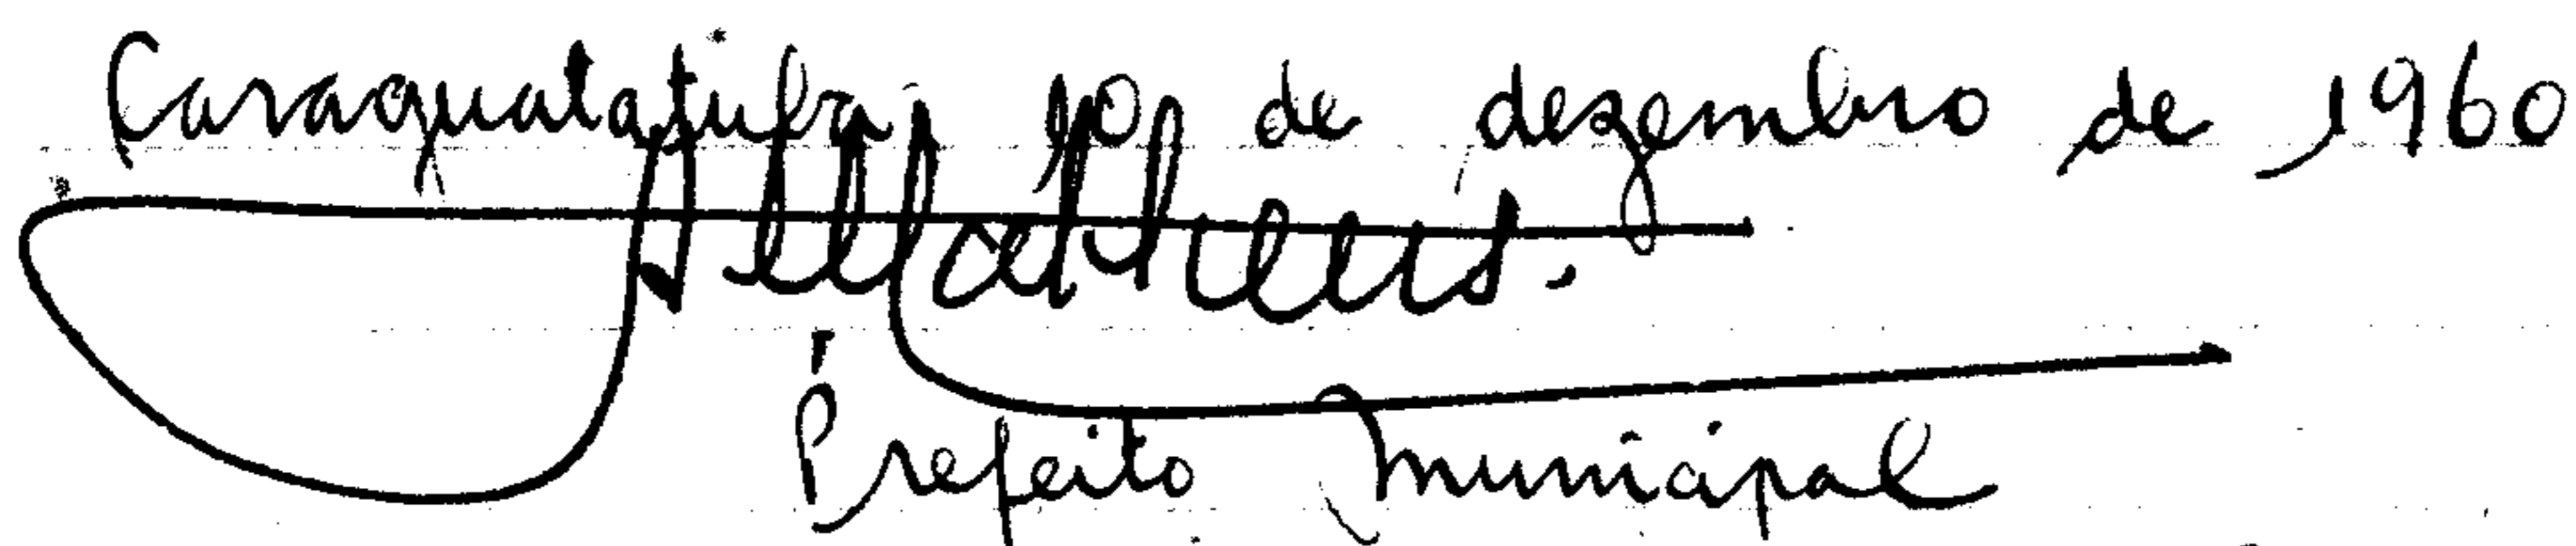 Caraguatatuba, 10 de dezembro de 1960
Prefeito Municipal